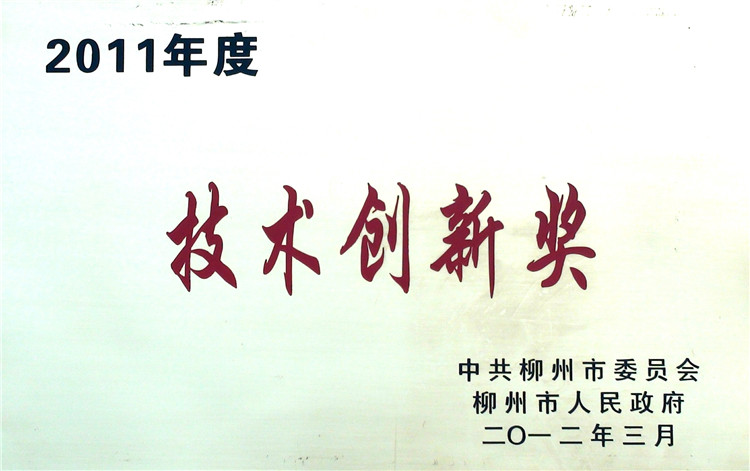 2011年度
技术创新奖
中共柳州市委员会
柳州市人民政府
二〇一二年三月